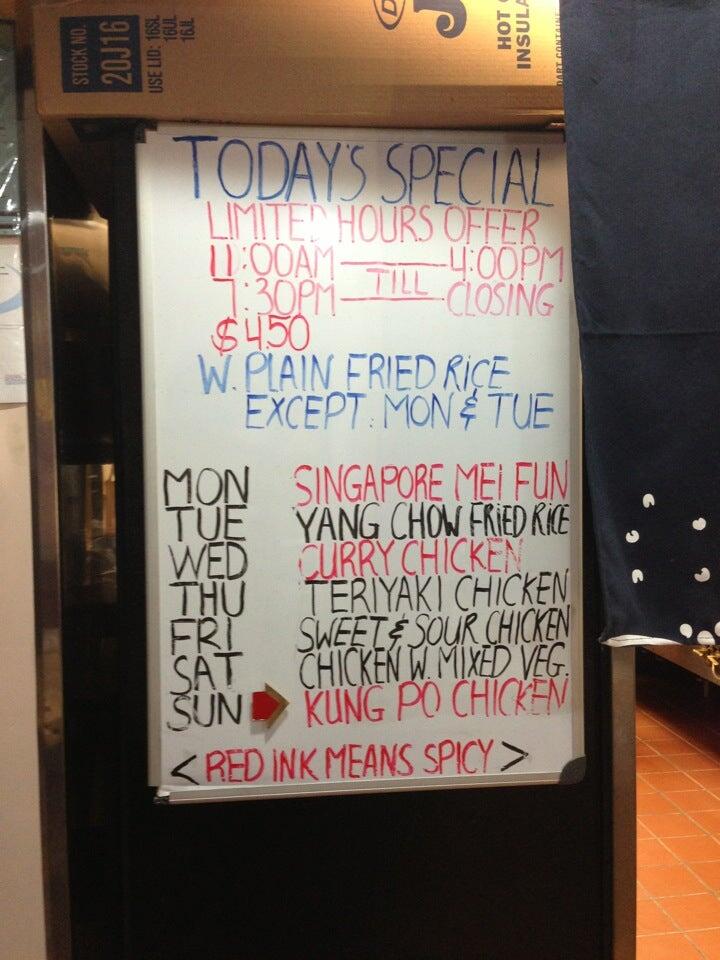 STOCK NO.
20J16
USE LID: 16SL
16UL
16JL
HOT
INSULA
TODAY'S SPECIAL
LIMITED HOURS OFFER
11:00AM — 4:00PM
7:30PM — TILL — CLOSING
$4.50
W. PLAIN FRIED RICE
EXCEPT: MON & TUE
MON SINGAPORE MEI FUN
TUE YANG CHOW FRIED RICE
WED CURRY CHICKEN
THU TERIYAKI CHICKEN
FRI SWEET & SOUR CHICKEN
SAT CHICKEN W. MIXED VEG.
SUN KUNG PO CHICKEN
< RED INK MEANS SPICY >